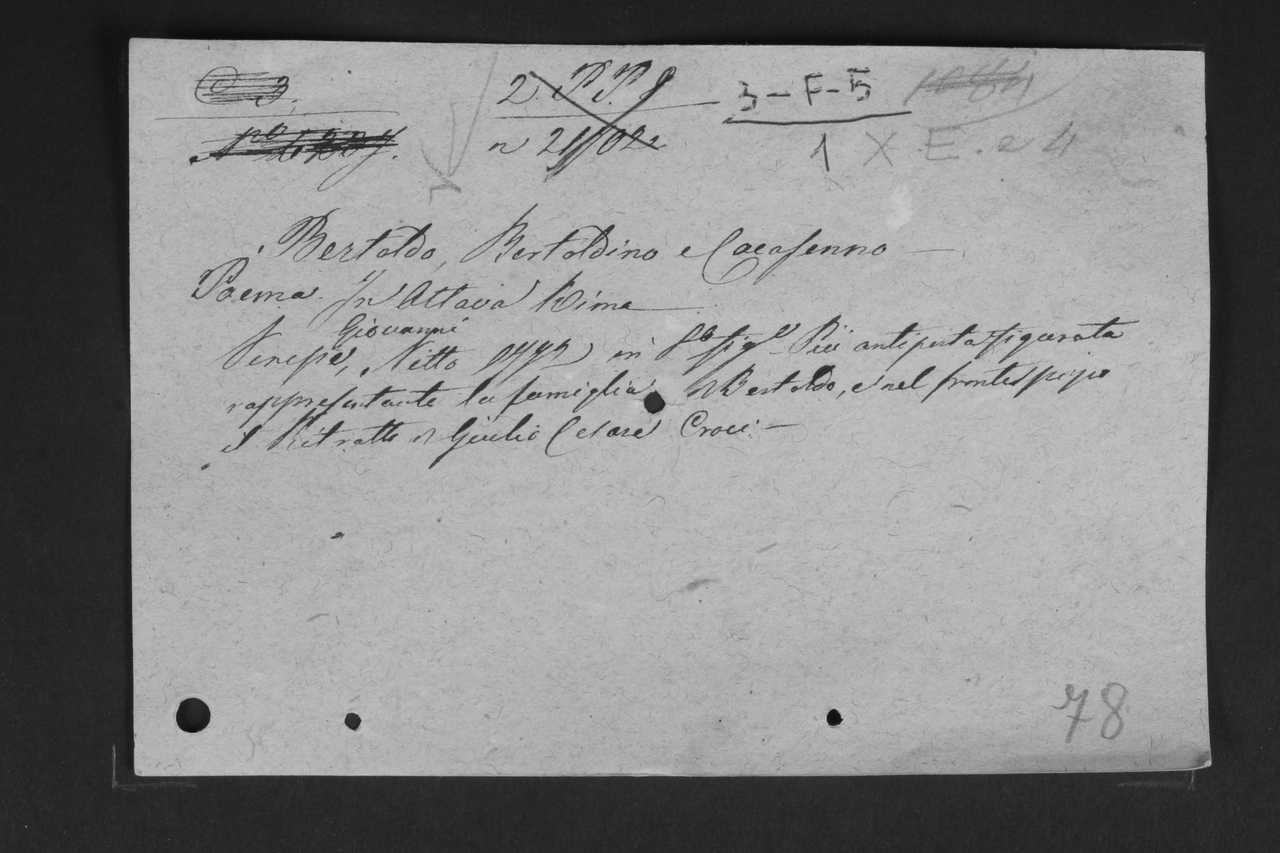 C 3.
2. P.P. 8
3-F-5
n 21102
1 X E. e 4
Bertoldo, Bertoldino e Cacasenno —
Poema In Ottava Rima
Giovanni
Venesie, Nitto in 8o fig. Più antiporta figurata
rappresentante la famiglia Bertoldo, e nel frontespizio
il Ritratto di Giulio Cesare Croci. —
78